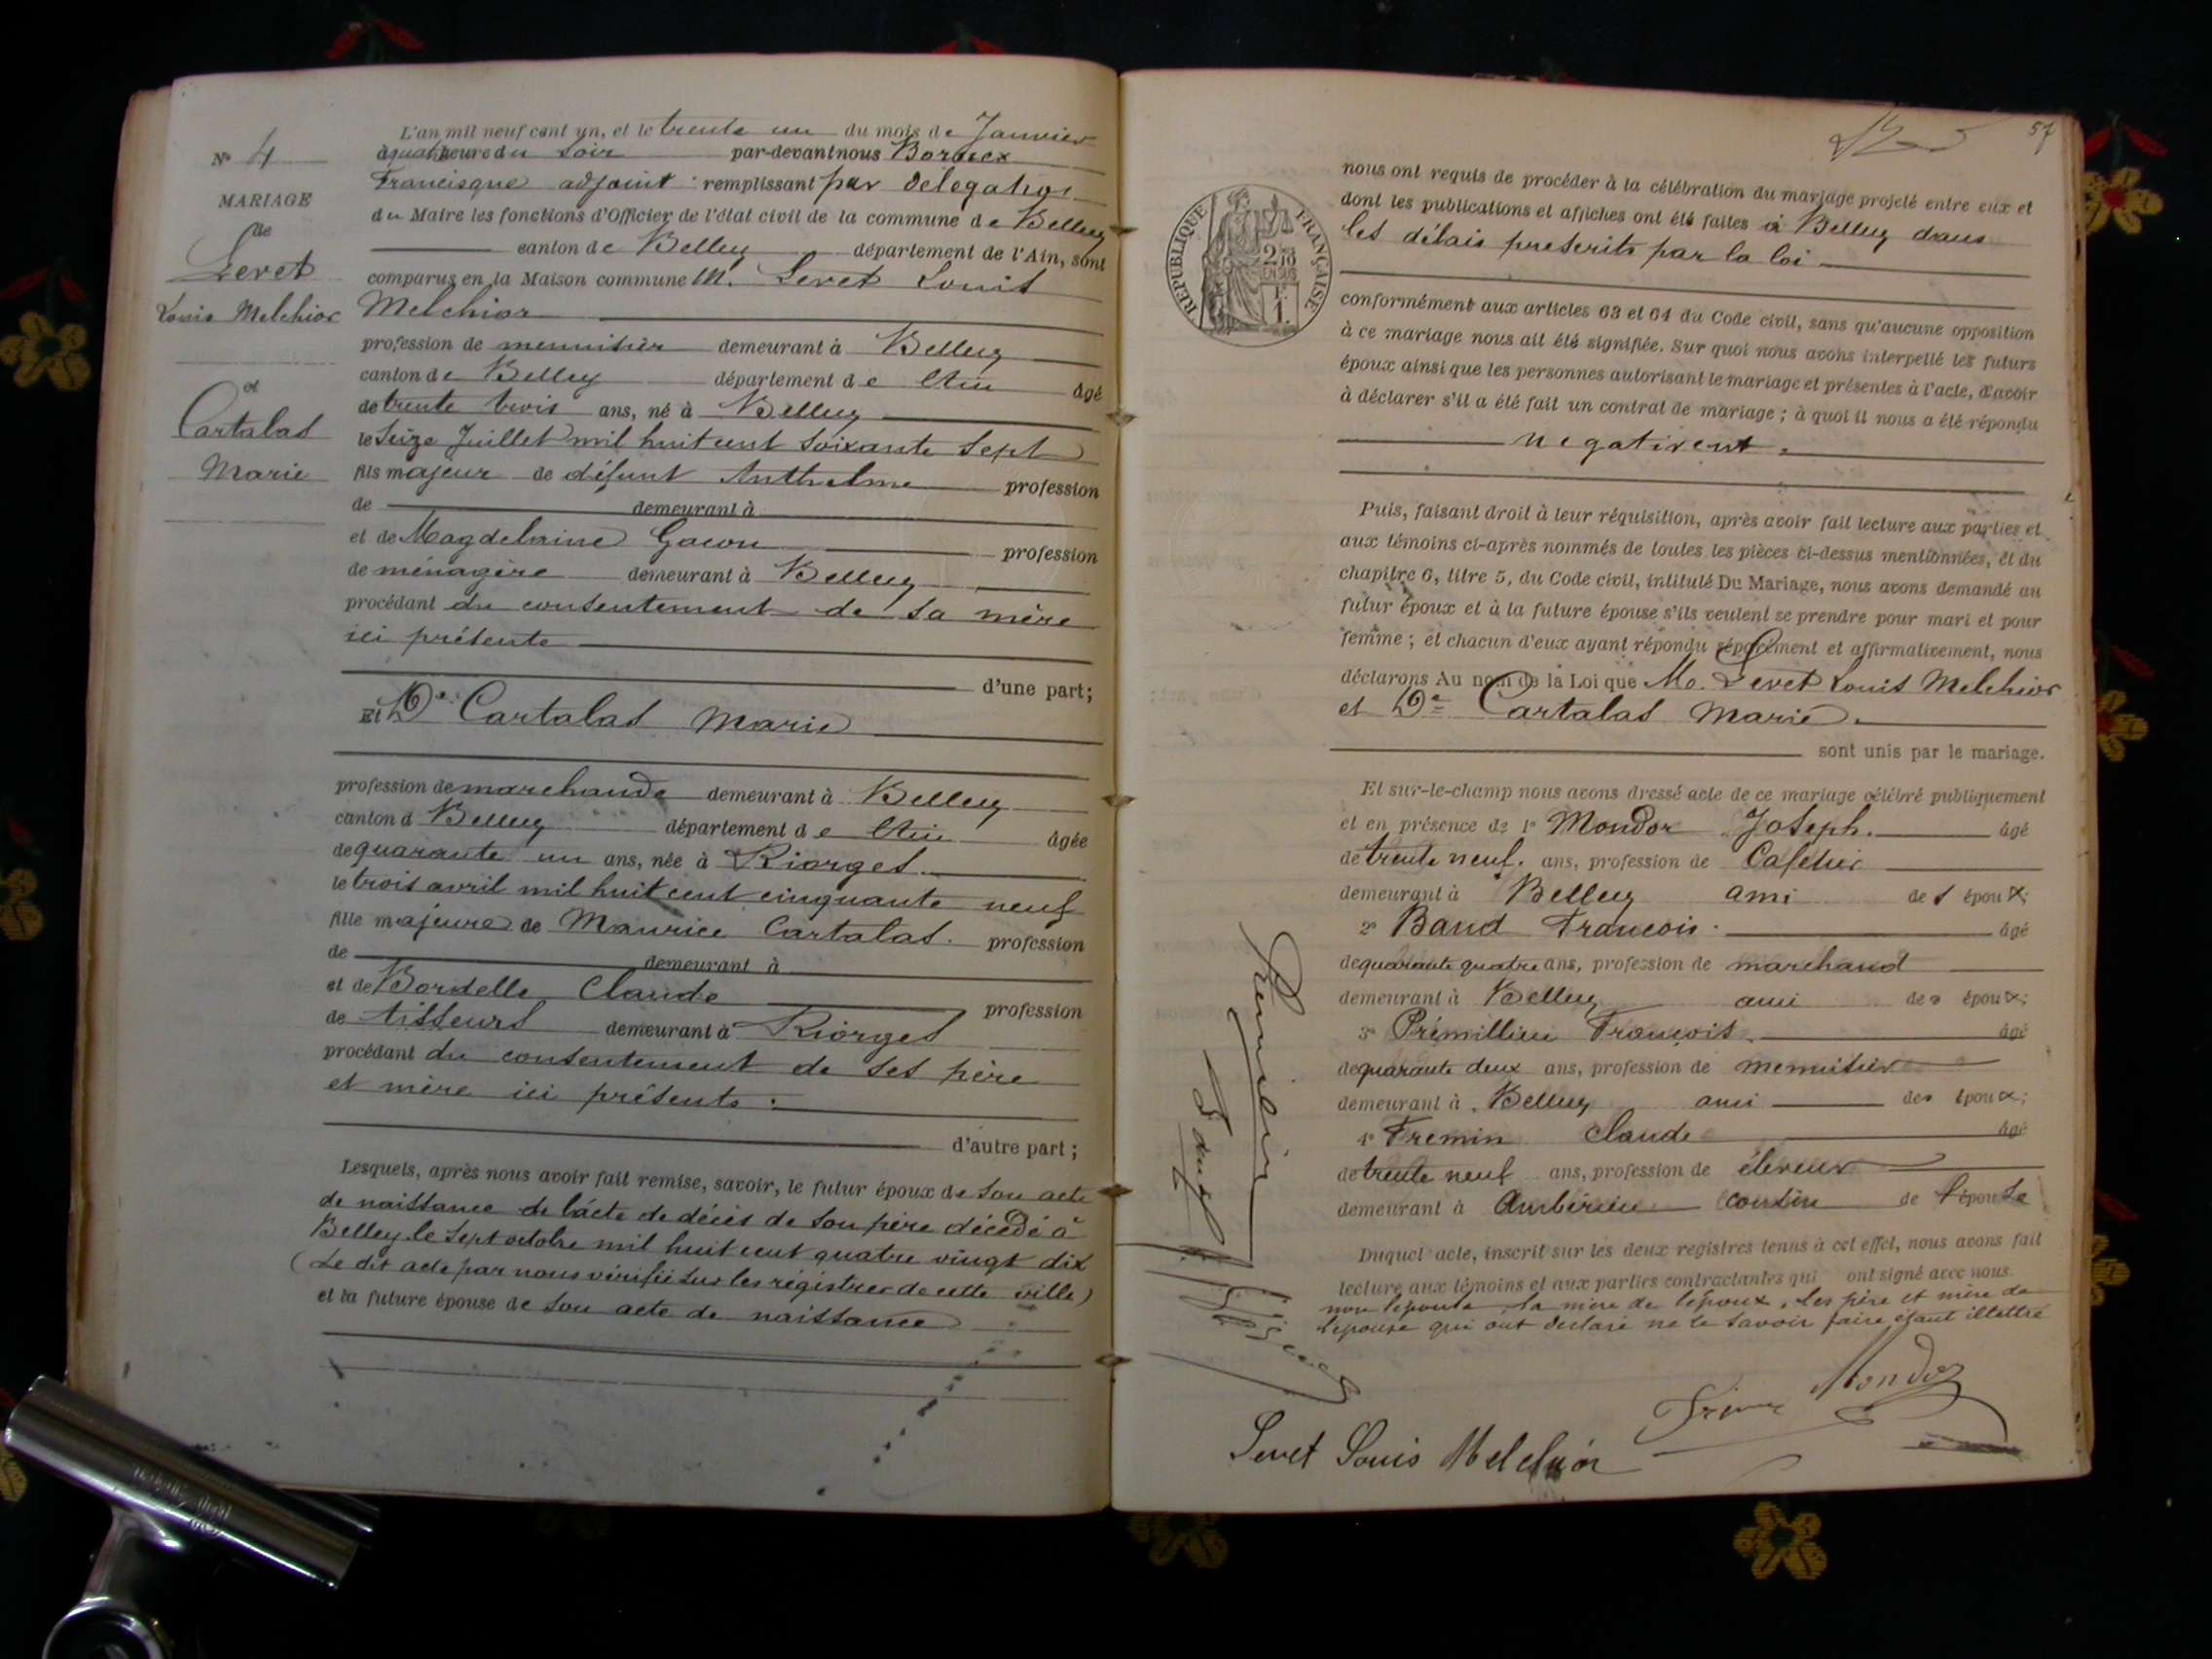 N° 4
MARIAGE
de
Levet
Louis Melchior
et
Cartalas
Marie
L'an mil neuf cent un, et le trente un du mois de Janvier
à quatre heure du soir par-devant nous Bornex
Francisque adjoint remplissant par délégation
du Maire les fonctions d'Officier de l'état civil de la commune de Belley
canton de Belley département de l'Ain, sont
comparus en la Maison commune M. Levet Louis
Melchior
profession de menuisier demeurant à Belley
canton de Belley département de l'Ain âgé
de trente trois ans, né à Belley
le seize Juillet mil huit cent soixante sept
fils majeur de défunt Anthelme profession
de demeurant à
et de Magdelaine Gacon profession
de ménagère demeurant à Belley
procédant du consentement de sa mère
ici présente
d'une part;
Et De Cartalas Marie
profession de marchande demeurant à Belley
canton d Belley département de l'Ain âgée
de quarante un ans, née à Riorges
le trois avril mil huit cent cinquante neuf
fille majeure de Maurice Cartalas. profession
de demeurant à
et de Bordelle Claude profession
de tisseurs demeurant à Riorges
procédant du consentement de ses père
et mère ici présents.
d'autre part;
Lesquels, après nous avoir fait remise, savoir, le futur époux de son acte
de naissance de l'acte de décès de son père décédé à
Belley le sept octobre mil huit cent quatre vingt dix
(Le dit acte par nous vérifié sur les régistres de cette ville)
et la future épouse de son acte de naissance
57
RÉPUBLIQUE FRANÇAISE
2/10 EN SUS
1 F.
nous ont requis de procéder à la célébration du mariage projeté entre eux et
dont les publications et affiches ont été faites à Belley dans
les délais prescrits par la loi
conformément aux articles 63 et 64 du Code civil, sans qu'aucune opposition
à ce mariage nous ait été signifiée. Sur quoi nous avons interpellé les futurs
époux ainsi que les personnes autorisant le mariage et présentes à l'acte, d'avoir
à déclarer s'il a été fait un contrat de mariage; à quoi il nous a été répondu
negativent.
Puis, faisant droit à leur réquisition, après avoir fait lecture aux parties et
aux témoins ci-après nommés de toutes les pièces ci-dessus mentionnées, et du
chapitre 6, titre 5, du Code civil, intitulé Du Mariage, nous avons demandé au
futur époux et à la future épouse s'ils veulent se prendre pour mari et pour
femme; et chacun d'eux ayant répondu séparément et affirmativement, nous
déclarons Au nom de la Loi que Mo. Levet Louis Melchior
et De Cartalas Marie.
sont unis par le mariage.
Et sur-le-champ nous avons dressé acte de ce mariage célébré publiquement
et en présence de 1° Mondor Joseph. âgé
de trente neuf. ans, profession de Cafetier
demeurant à Belley ami des époux;
2° Band Francois. âgé
de quarante quatre ans, profession de marchand
demeurant à Belley ami des époux;
3° Prémillieu François. âgé
de quarante deux ans, profession de menuisier
demeurant à Belley ami des époux;
4° Fremin Claude âgé
de trente neuf ans, profession de éleveur
demeurant à Ambérieu cousin de l'épouse
Duquel acte, inscrit sur les deux registres tenus à cet effet, nous avons fait
lecture aux témoins et aux parties contractantes qui ont signé avec nous
non l'épouse, la mère de l'époux, les père et mère de
l'épouse qui ont déclaré ne le savoir faire étant illettré
Mondor
Levet Louis Melchior